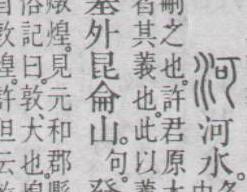 河河水
嗣之也。許君原
者其義也。此以義
塞外昆侖山。句。發
燉煌。見元和郡縣
俗記曰。敦大也。
煌。許但云